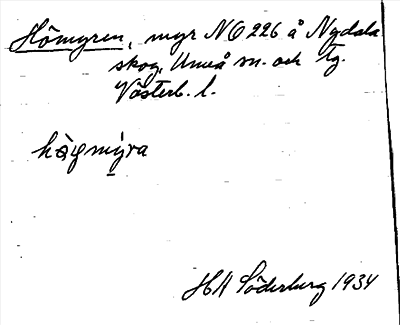 Hömyren, myr NO 226 å Nydala
skog, Umeå sn. och tg.
Västerb. l.
HH Söderburg 1934